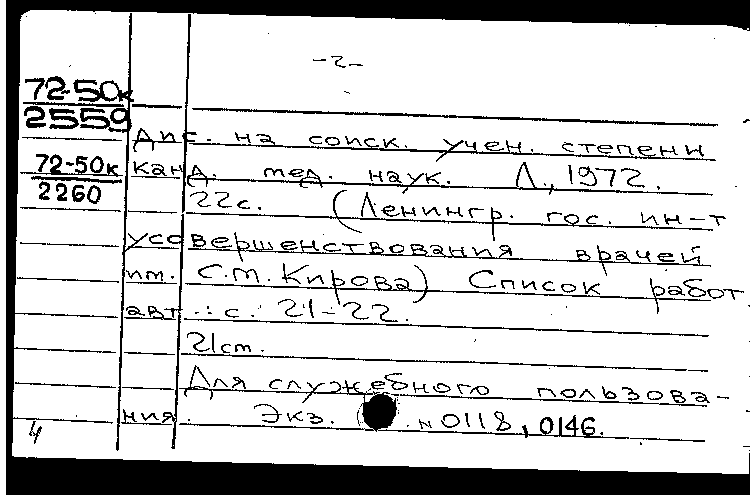 -2-
72-50к
2559
дис. на соиск. учен. степени
72-50к
2260
канд. мед. наук. Л., 1972.
22с. (Ленингр. гос. ин-т
усовершенствования врачей
им. С.М. Кирова) Список работ
авт.: с. 21-22.
21см.
Для служебного пользова-
ния. Экз. N 0118, 0146.
4